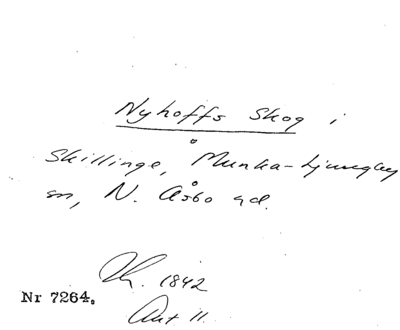 Nyhoffs Skog i
Skillinge, Munka-Ljungby
sn, N. Åsbo hd.
1842
Nr 7264.
Akt 11.